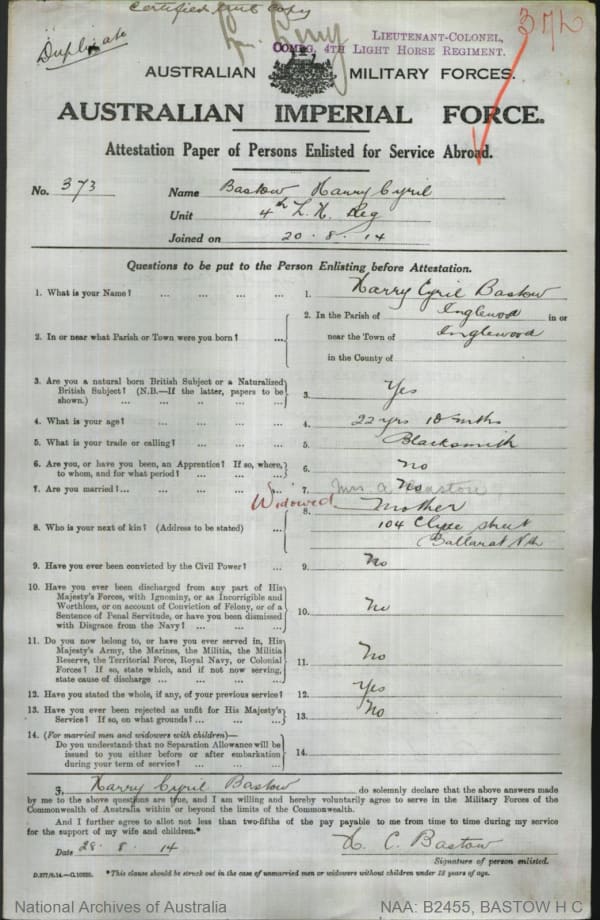 Certified true Copy
Duplicate
372
LIEUTENANT-COLONEL,
COMDG, 4TH LIGHT HORSE REGIMENT.
AUSTRALIAN MILITARY FORCES.
AUSTRALIAN IMPERIAL FORCE.
Attestation Paper of Persons Enlisted for Service Abroad.
No. 373
Name Bastow Harry Cyril
Unit 4th L. H. Reg
Joined on 20 . 8 . 14
Questions to be put to the Person Enlisting before Attestation.
1. What is your Name? ... ... ... ... 1. Harry Cyril Bastow
2. In or near what Parish or Town were you born? ... 2. In the Parish of Inglewood in or
near the Town of Inglewood
in the County of
3. Are you a natural born British Subject or a Naturalized
British Subject? (N.B.—If the latter, papers to be
shown.) ... ... ... ... ... 3. Yes
4. What is your age? ... ... ... ... 4. 22 yrs 10 mths
5. What is your trade or calling? ... ... ... 5. Blacksmith
6. Are you, or have you been, an Apprentice? If so, where,
to whom, and for what period? ... ... 6. no
7. Are you married? ... ... ... ... 7. No
Mrs A Bastow
Widowed
8. Who is your next of kin? (Address to be stated) ... 8. Mother
104 Clyde street
Ballarat Nth
9. Have you ever been convicted by the Civil Power? ... 9. No
10. Have you ever been discharged from any part of His
Majesty's Forces, with Ignominy, or as Incorrigible and
Worthless, or on account of Conviction of Felony, or of a
Sentence of Penal Servitude, or have you been dismissed
with Disgrace from the Navy? ... ... ... 10. No
11. Do you now belong to, or have you ever served in, His
Majesty's Army, the Marines, the Militia, the Militia
Reserve, the Territorial Force, Royal Navy, or Colonial
Forces? If so, state which, and if not now serving,
state cause of discharge ... ... ... 11. No
12. Have you stated the whole, if any, of your previous service? 12. Yes
13. Have you ever been rejected as unfit for His Majesty's
Service? If so, on what grounds? ... ... ... 13. No
14. (For married men and widowers with children)—
Do you understand that no Separation Allowance will be
issued to you either before or after embarkation
during your term of service? ... ... 14.
I, Harry Cyril Bastow do solemnly declare that the above answers made
by me to the above questions are true, and I am willing and hereby voluntarily agree to serve in the Military Forces of the
Commonwealth of Australia within or beyond the limits of the Commonwealth.
And I further agree to allot not less than two-fifths of the pay payable to me from time to time during my service
for the support of my wife and children.*
Date 28 . 8 . 14
H. C. Bastow
Signature of person enlisted.
D.277/8.14.—C.10320. *This clause should be struck out in the case of unmarried men or widowers without children under 18 years of age.
National Archives of Australia
NAA: B2455, BASTOW H C